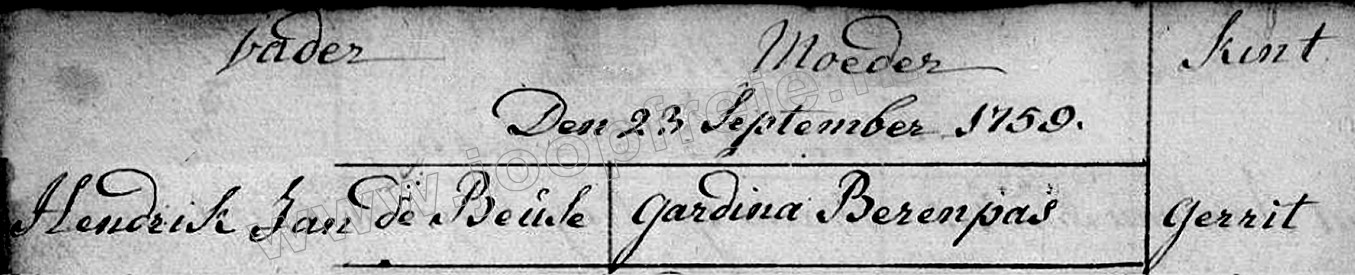 Vader Moeder Kint
Den 23 September 1759.
Hendrik Jan de Beúse Gardina Berenpas Gerrit